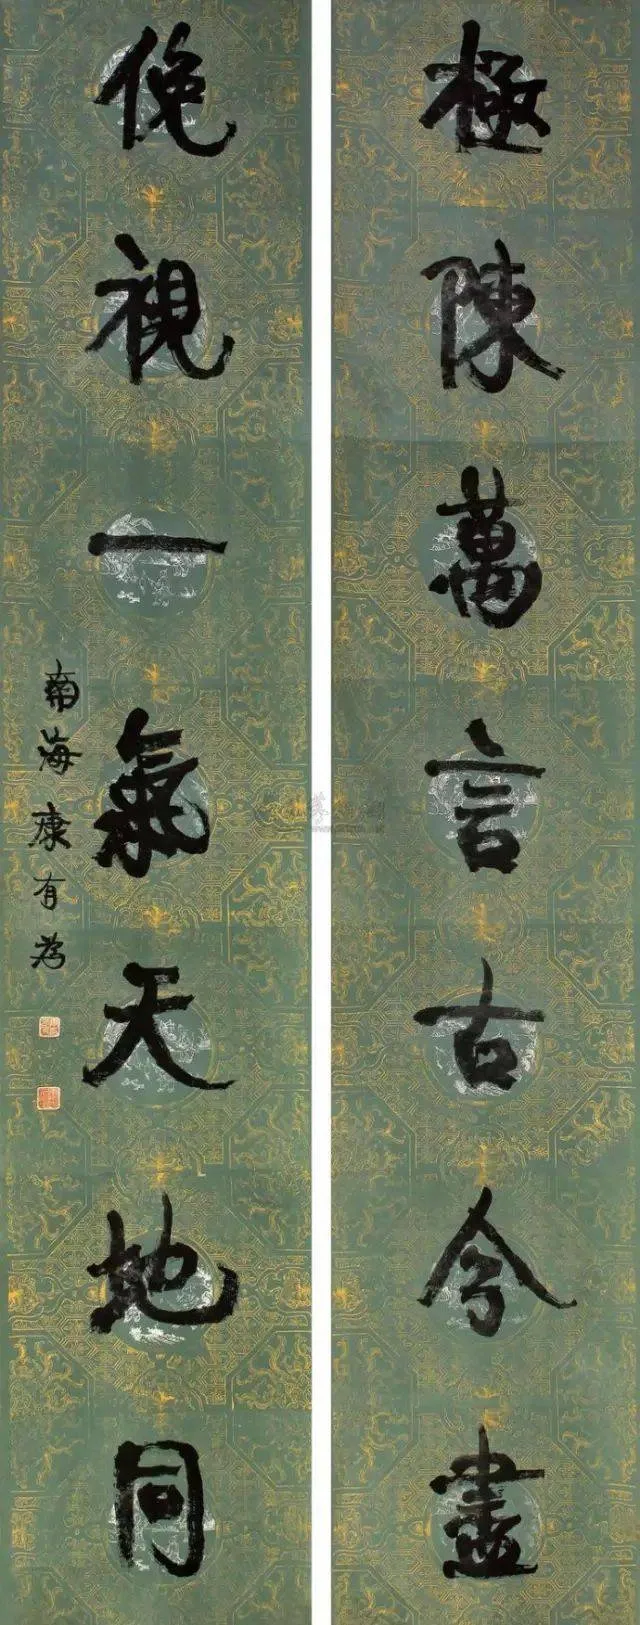 極陳萬言古今盡
俛視一氣天地同
南海康有為